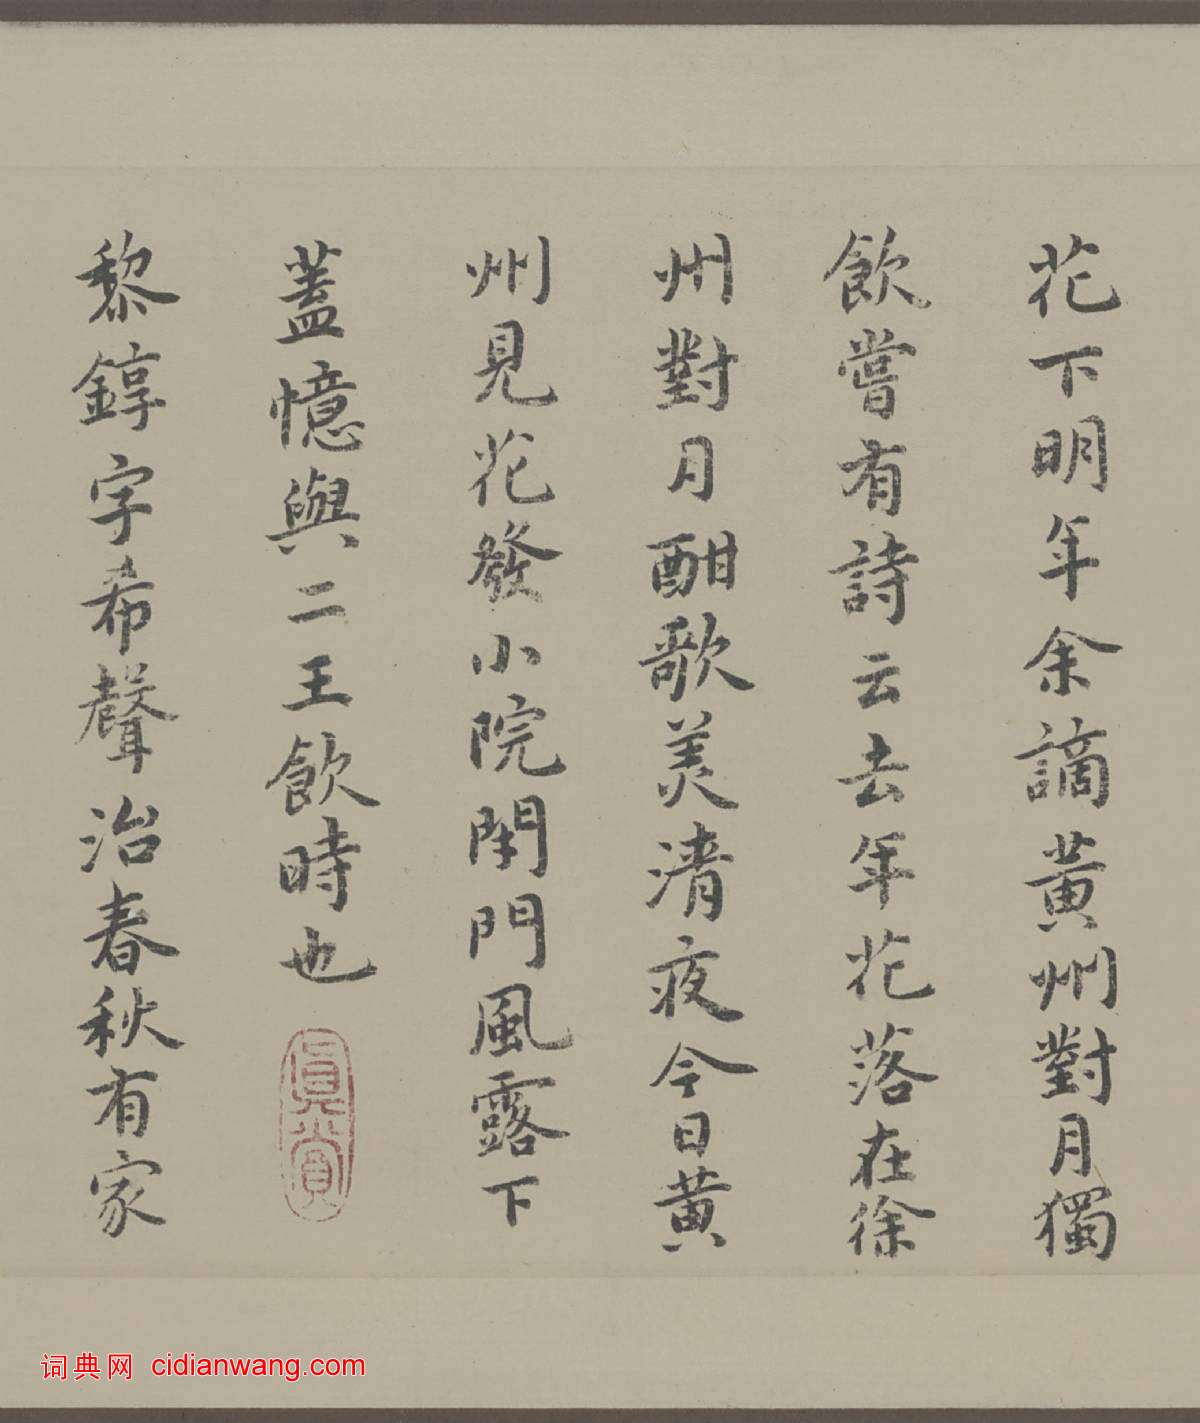 花下明年余謫黃州對月獨
飲嘗有詩云去年花落在徐
州對月酣歌美清夜今日黃
州見花發小院閉門風露下
蓋憶與二王飲時也
黎錞字希聲治春秋有家
真賞
词典网 cidianwang.com